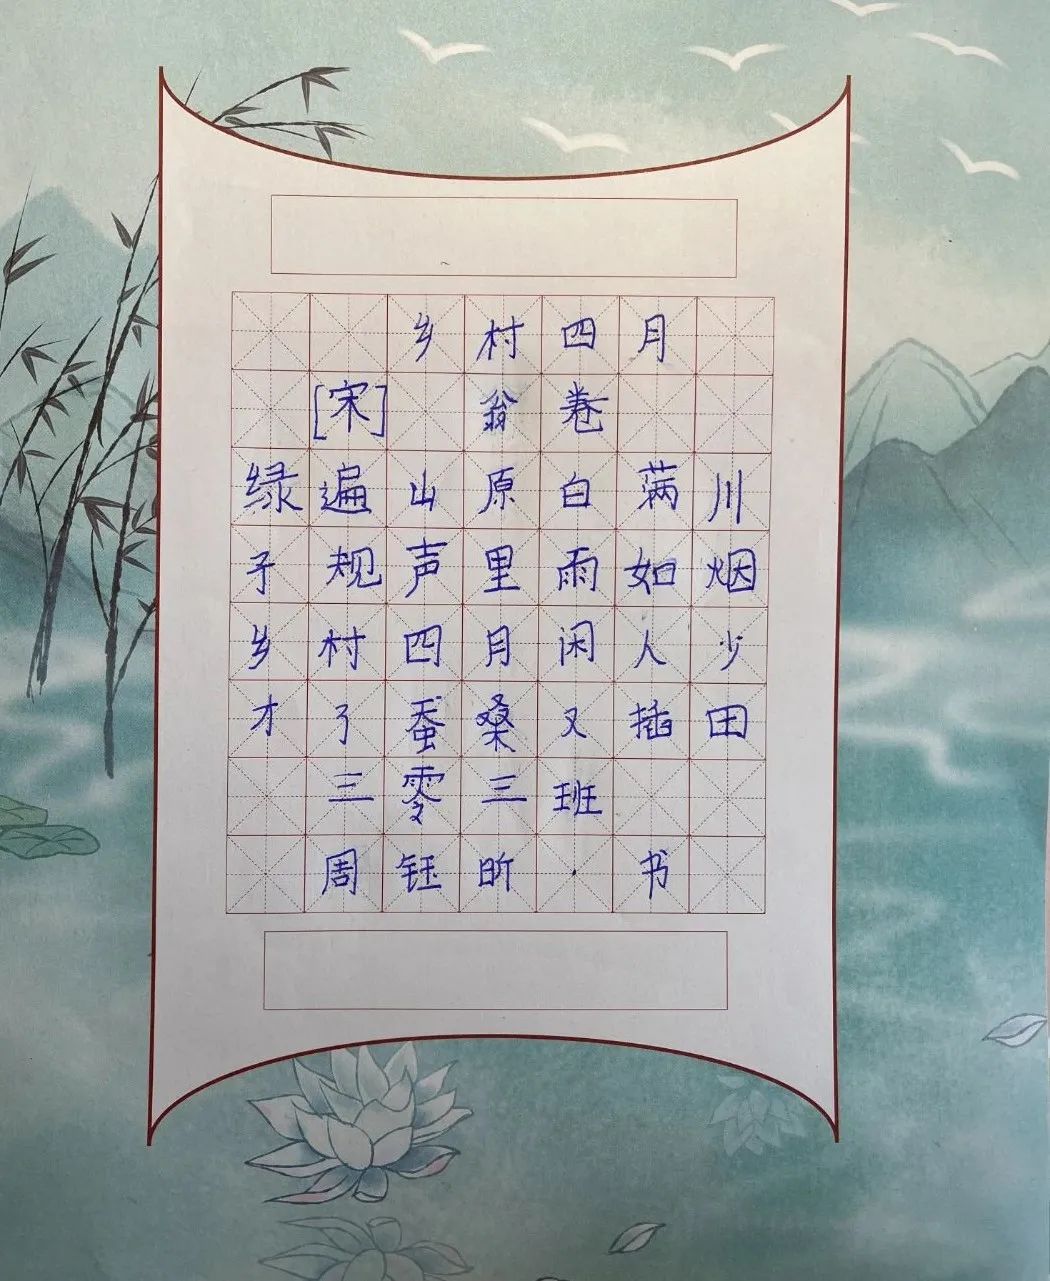 乡村四月
[宋] 翁卷
绿遍山原白满川
子规声里雨如烟
乡村四月闲人少
才了蚕桑又插田
三零三班
周钰昕 书